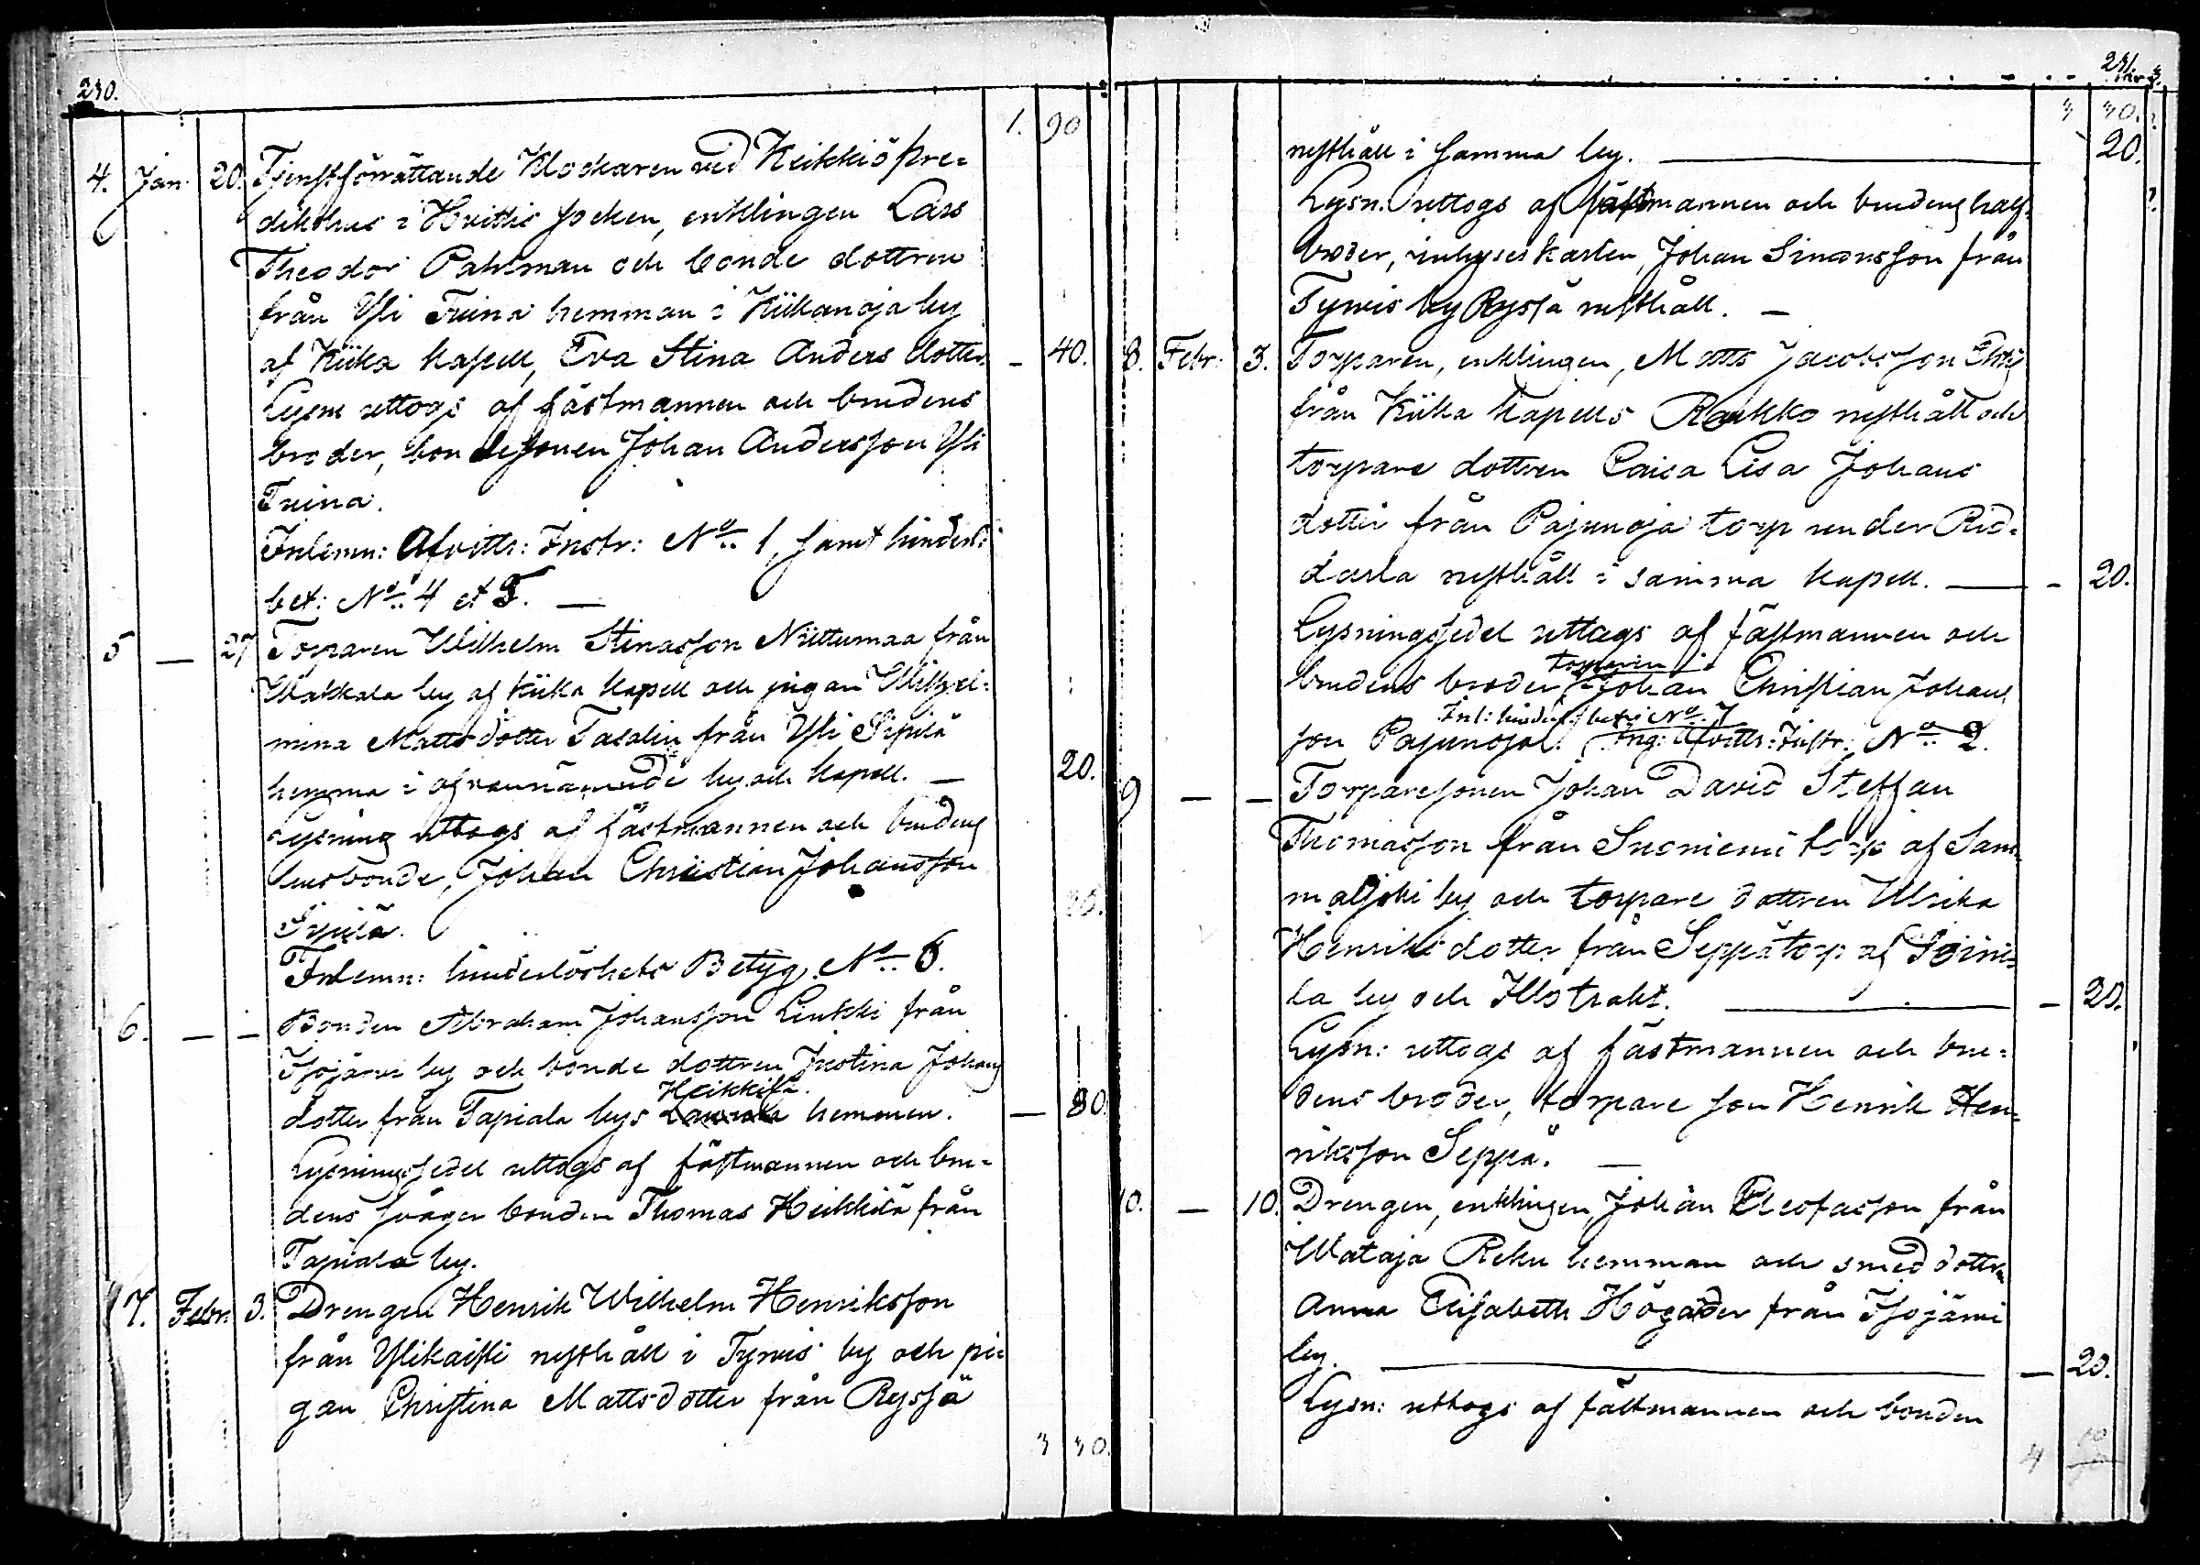 230.
1. 90
4. Jan. 20. Tjenstförrättande Klockaren vid Keikkiö pre-
dikohus i Hvittis socken, enklingen Lars
Theodor Pahlman och bonde dottren
från Yli hemman i Kiikanoja by
af Kiika kapell, Eva Stina Anders dotter. - 40.
Lysn uttogs af fästmannen och brudens
broder, bondesonen Johan Andersson Yli

Inlemn: Afvittr: Instr: No. 1, samt hinderl:
bet: No. 4 et 5. —
5 — 27 Torparen Wilhelm Stinasson Niittumaa från
Wakkala by af Kiika kapell och pigan Wilhel-
mina Matts dotter från Yli Sipilä
hemma i ofvannämnde by och kapell. — 20.
Lysning uttogs af fästmannen och brudens
husbonde, Johan Christian Johansson
Sipilä.
Inlemn: hinderlöshets Betyg. No. 6.
6. — — Bonden Abraham Johansson Liukki från
Isojärvi by och bonde dottren Justina Johans
Heikkilä.
dotter från Tapiala bys hemman. — 80.
Lysningssedel uttogs af fästmannen och bru-
dens svåger bonden Thomas Heikkilä från
Tapiala by.
7. Febr. 3. Drengen Henrik Wilhelm Henriksson
från Ylikaisti rusthåll i Tyrvis by och pi-
gan Christina Mattsdotter från Ryssä
3 30.
231.
3 30.
rusthåll i samma by. — 20.
Lysn. uttogs af fästmannen och brudens half-
broder, inhyseskarlen, Johan Simonsson från
Tyrvis by Ryssä rusthåll. —
8. Febr. 3. Torparen, enklingen, Matts Jacobsson
från Kiika kapells Raukko rusthåll och
torpare dottren Caisa Lisa Johans
dotter från Pajunoja torp under Rid-
dasla rusthåll i samma kapell. — - 20.
Lysningssedel uttags af fästmannen och
torparen
brudens broder Johan Christian Johans
Inl: hinderl: bet: No. 7
son Pajunoja. Ing: Afvittr: Instr: No. 2.
9 — — Torparesonen Johan David Steffan
Thomasson från Suoniemi torp af Sam-
maljoki by och torpare dottren Ulrika
Henriks dotter från Seppä torp af
la by och Illo trakt. — - 20.
Lysn: uttogs af fästmannen och bru-
dens broder, torpare son Henrik Hen-
riksson Seppä. —
10. — 10. Drengen, enklingen Johan Cleofasson från
Wataja Reku hemman och smed dottren
Anna Elisabeth Högader från Isojärvi
by. — — 20.
Lysn: uttogs af fästmannen och bonden
4